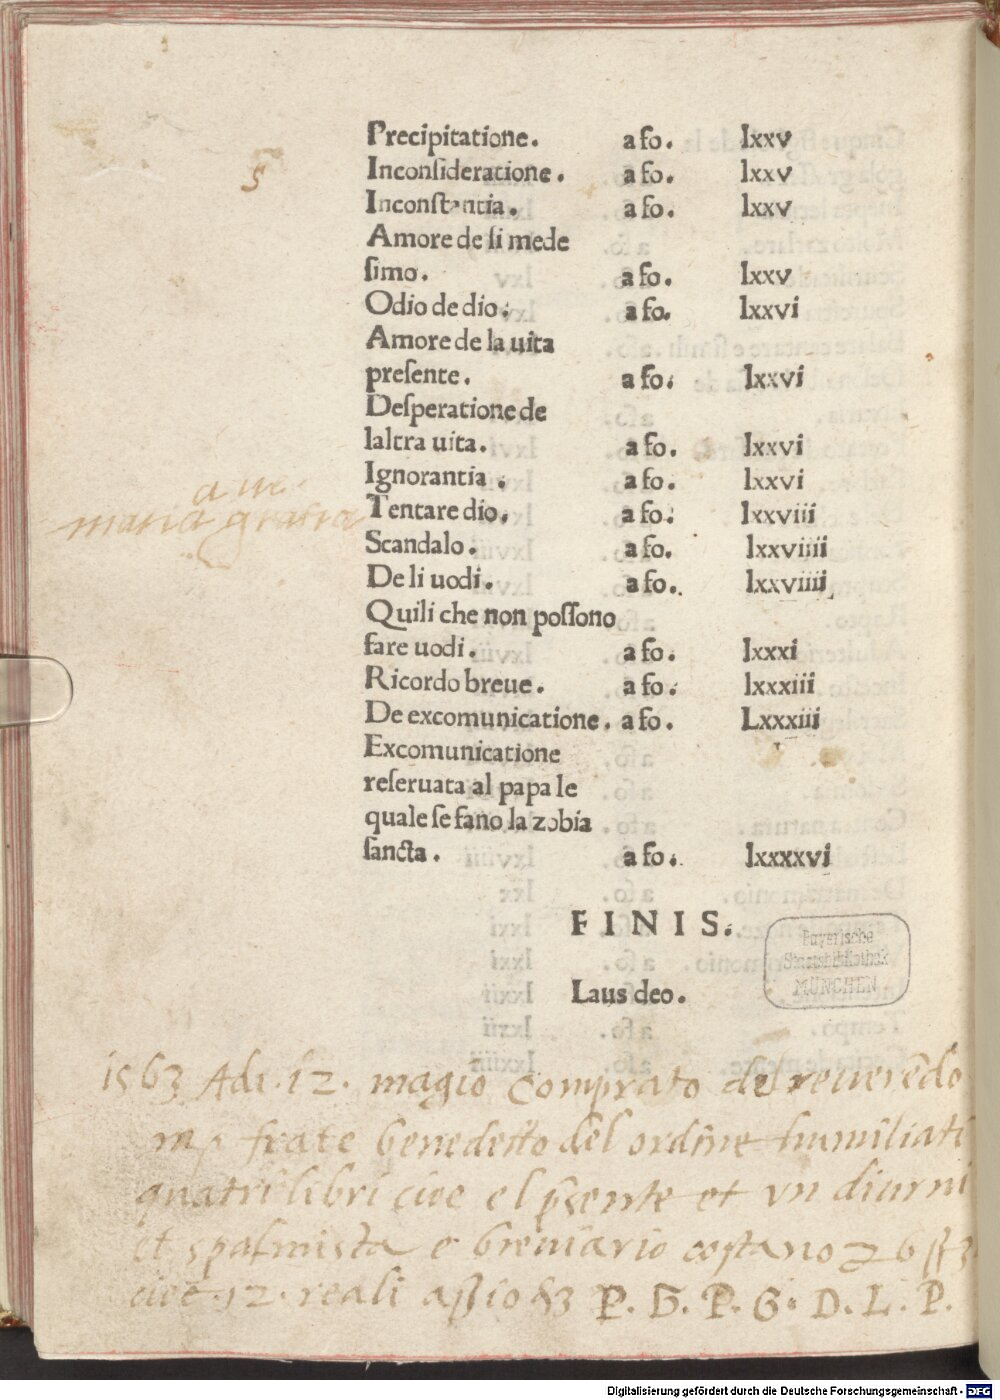 Precipitatione. a fo. lxxv
Inconſideratione. a fo. lxxv
Inconſtantia. a fo. lxxv
Amore de ſi mede
ſimo. a fo. lxxv
Odio de dio. a fo. lxxvi
Amore de la uita
preſente. a fo. lxxvi
Deſperatione de
laltra uita. a fo. lxxvi
Ignorantia. a fo. lxxvi
Tentare dio. a fo. lxxviii
Scandalo. a fo. lxxviiii
De li uodi. a fo. lxxviiii
Quili che non poſſono
fare uodi. a fo. lxxxi
Ricordo breue. a fo. lxxxiii
De excomunicatione. a fo. Lxxxiii
Excomunicatione
reſeruata al papa le
quale ſe fano la zobia
ſancta. a fo. lxxxxvi
FINIS.
Laus deo.
Bayerische
Staatsbibliothek
MÜNCHEN
5
maria gratia
1563 Adi. 12. magio Comprato del reuerēdo
frate benedetto del ordine humiliati
quatri libri cioe el p̄sente et vn diurni
et spalmista e breuiario costano
12. reali P. P. G. D. L. P.
Digitalisierung gefördert durch die Deutsche Forschungsgemeinschaft - DFG